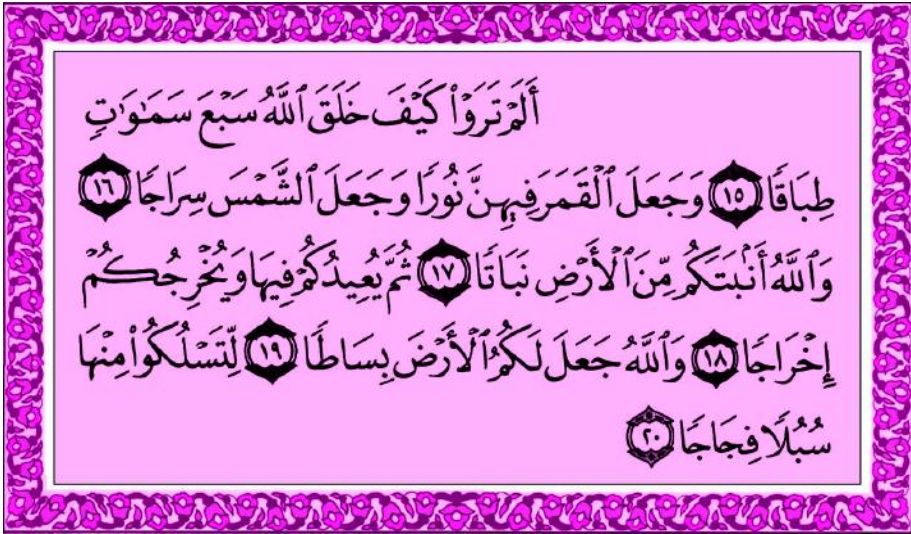 أَلَمۡ تَرَوۡاْ كَيۡفَ خَلَقَ ٱللَّهُ سَبۡعَ سَمَٰوَٰتٖ
طِبَاقٗا ١٥ وَجَعَلَ ٱلۡقَمَرَ فِيهِنَّ نُورٗا وَجَعَلَ ٱلشَّمۡسَ سِرَاجٗا ١٦
وَٱللَّهُ أَنۢبَتَكُم مِّنَ ٱلۡأَرۡضِ نَبَاتٗا ١٧ ثُمَّ يُعِيدُكُمۡ فِيهَا وَيُخۡرِجُكُمۡ
إِخۡرَاجٗا ١٨ وَٱللَّهُ جَعَلَ لَكُمُ ٱلۡأَرۡضَ بِسَاطٗا ١٩ لِّتَسۡلُكُواْ مِنۡهَا
سُبُلٗا فِجَاجٗا ٢٠